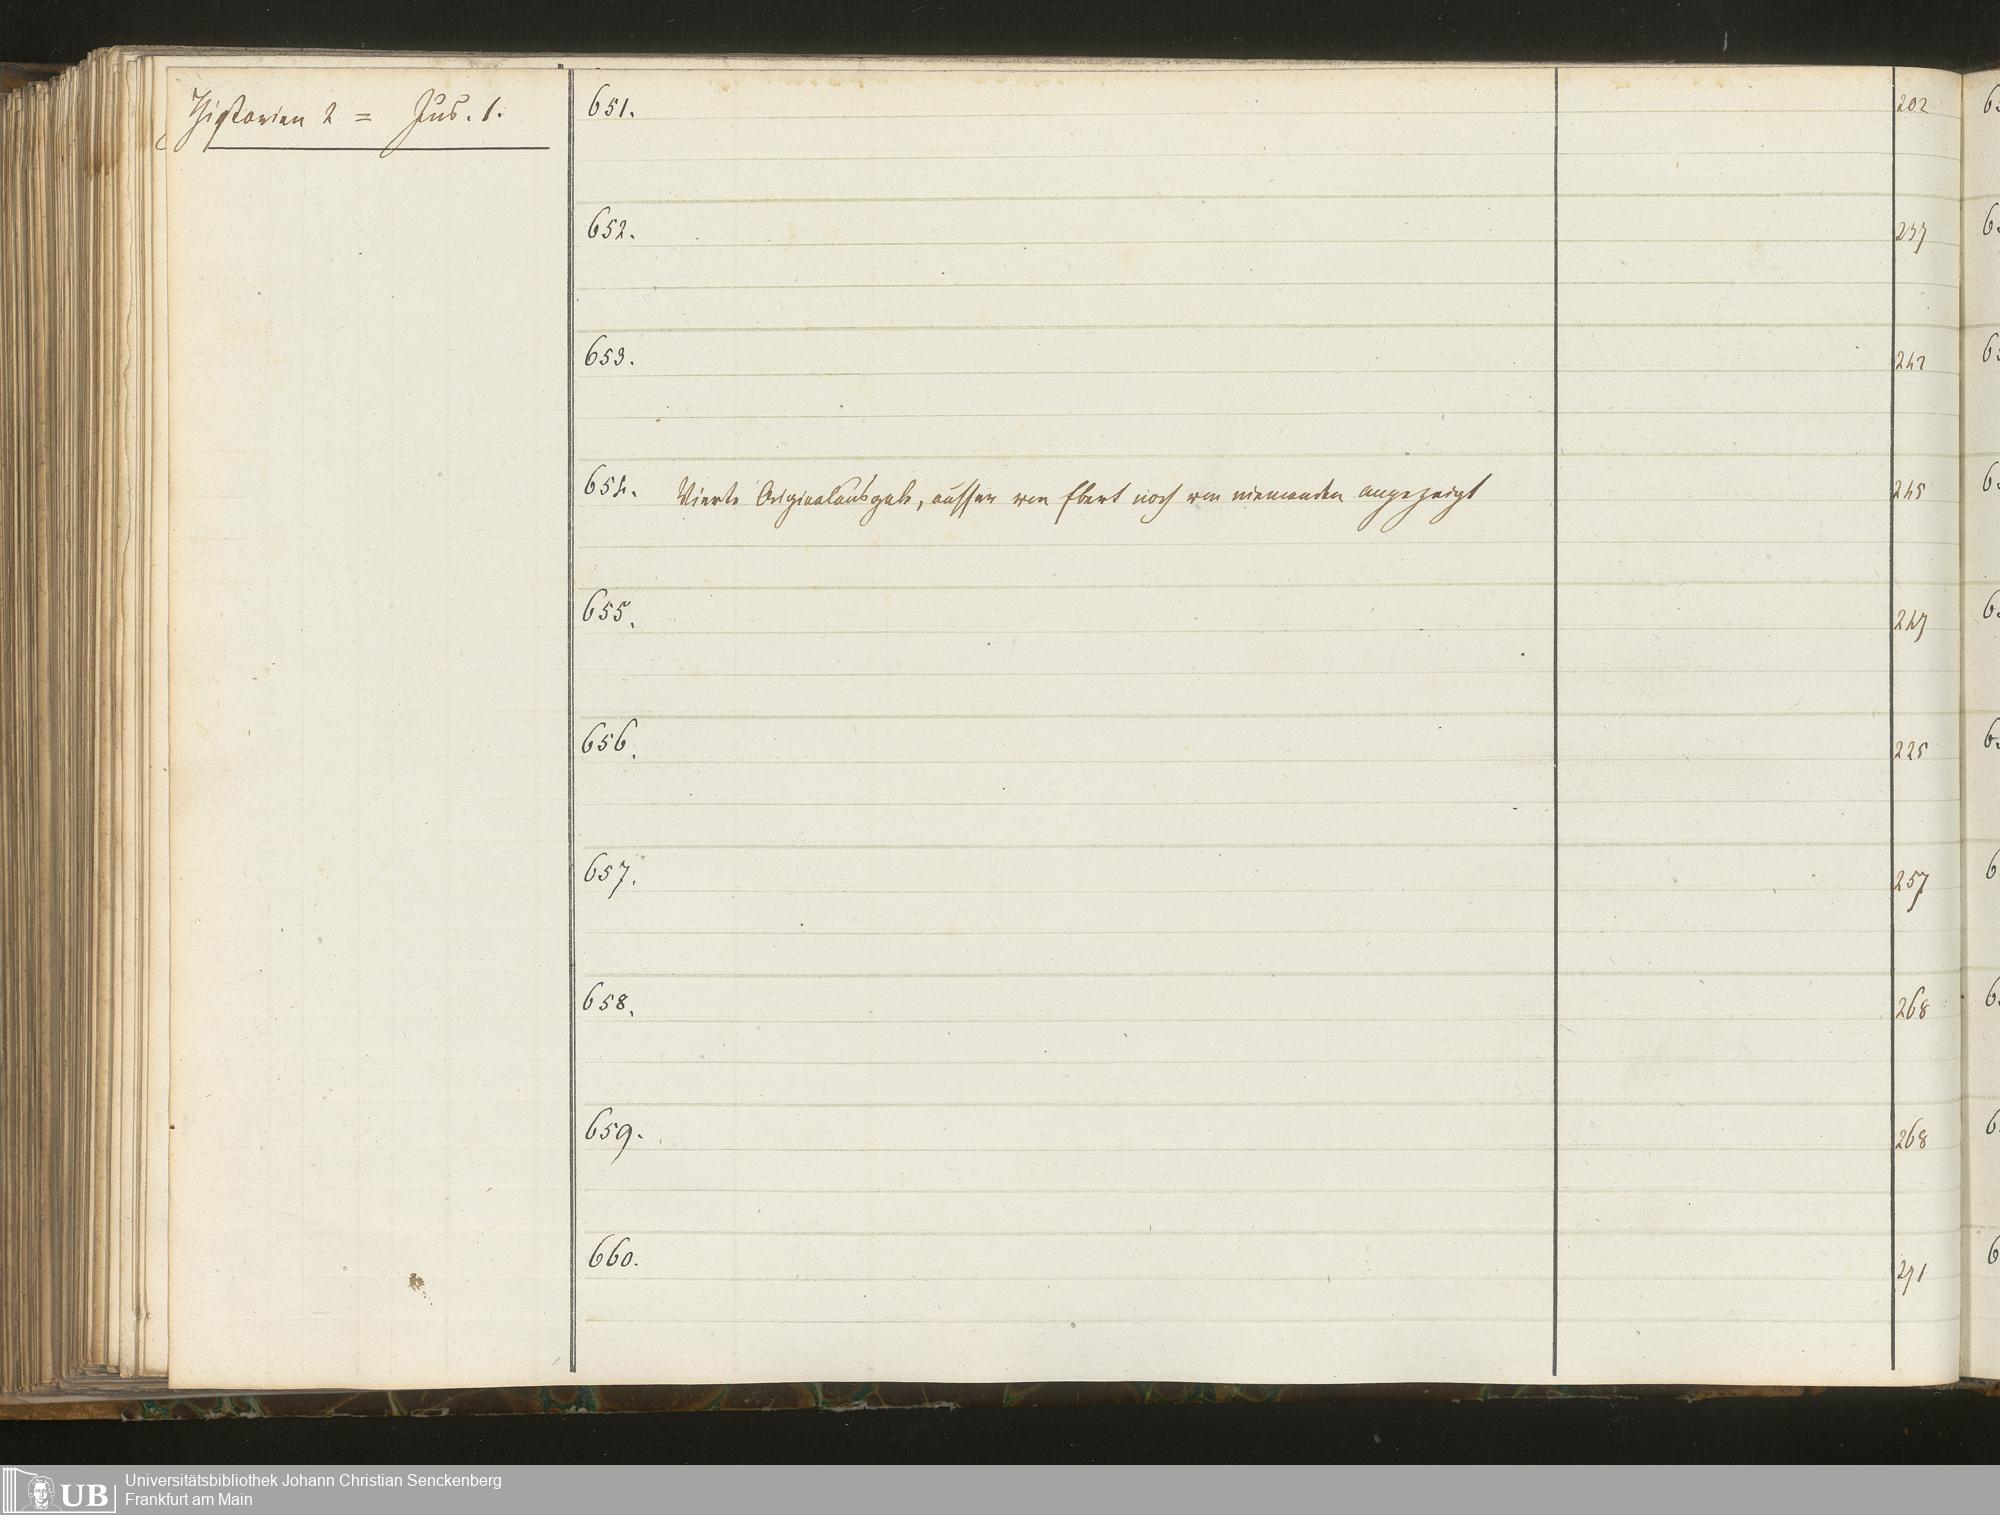 Historien 2 = Jus. 1.
651. 202
652. 237
653. 242
654. Vierte Originalausgabe, ausser von Ebert noch von niemanden angezeigt 245
655. 247
656. 225
657. 257
658. 268
659. 268
660. 271
UB
Universitätsbibliothek Johann Christian Senckenberg
Frankfurt am Main